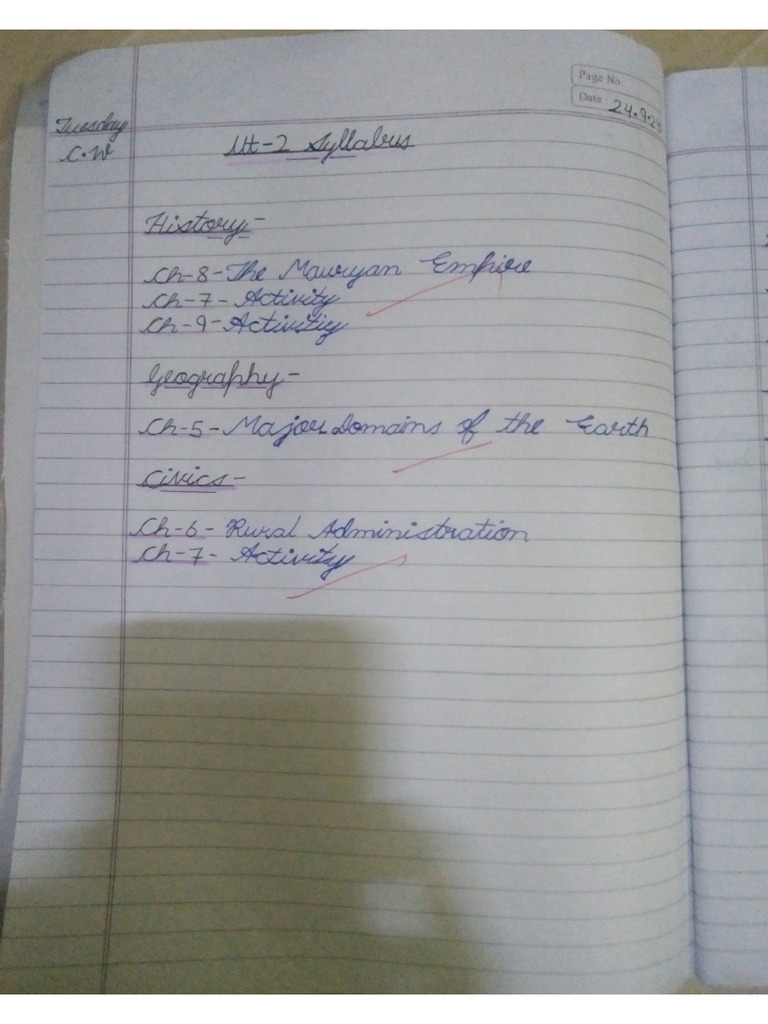 Page No.
Date: 24.9.24
Tuesday
C.W
Ut-2 Syllabus
History-
Ch-8-The Mauryan Empire
Ch-7-Activity
Ch-9-Activitiy
Geography-
Ch-5-Major Domains of the Earth
Civics-
Ch-6- Rural Administration
Ch-7- Activity